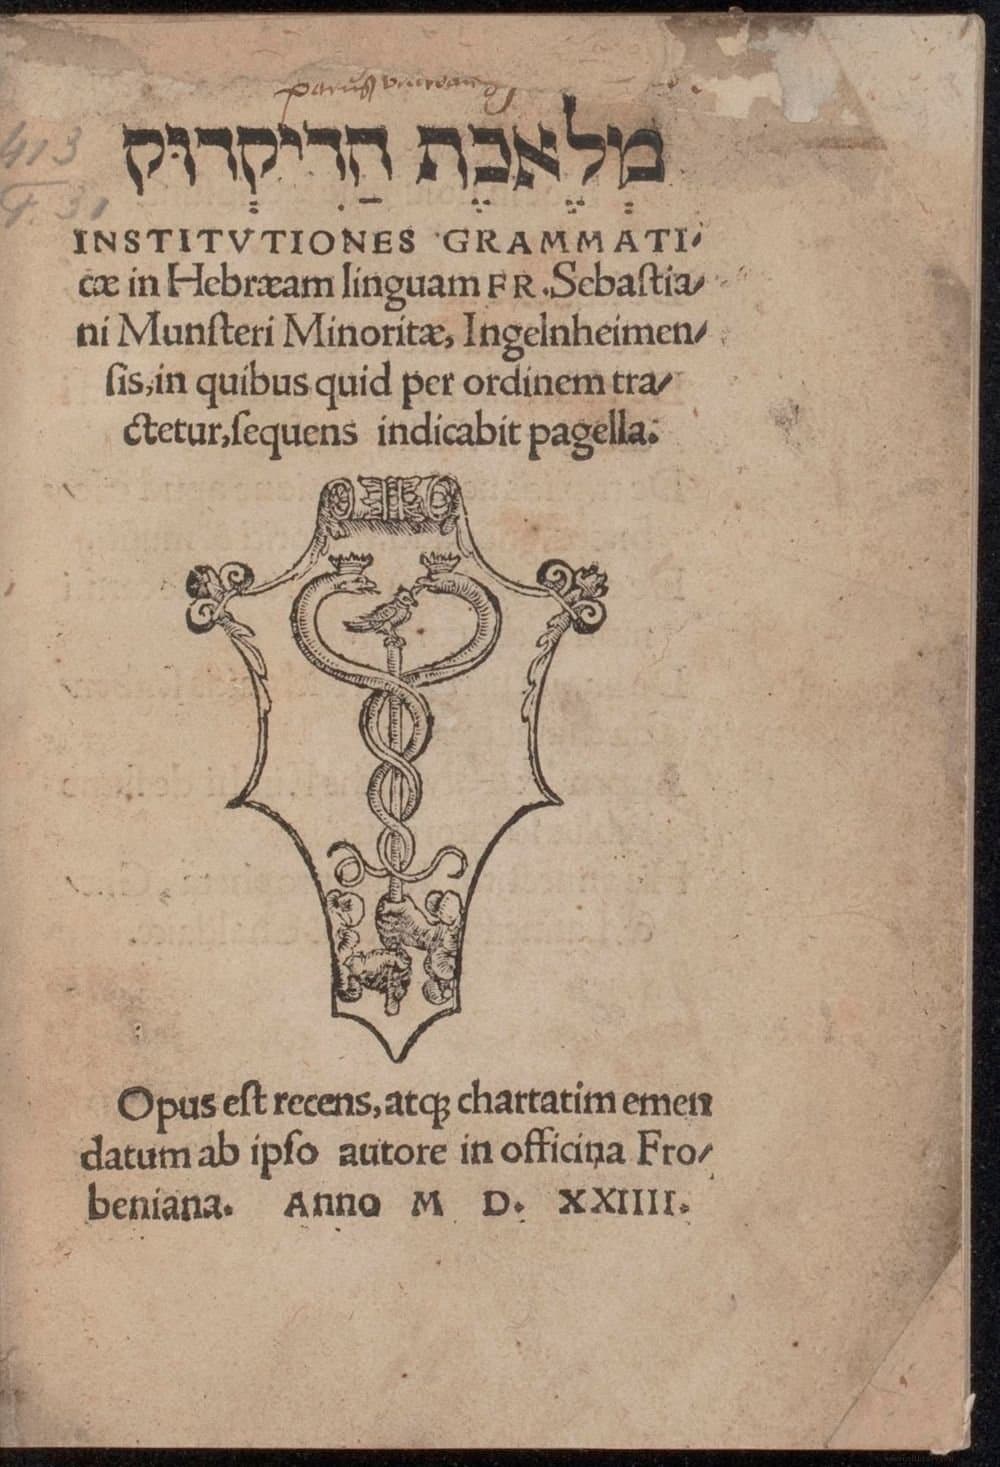 מְלֶאכֶת הַדִיקְדוּק
INSTITVTIONES GRAMMATI⸗
cæ in Hebræam linguam FR. Sebaſtia⸗
ni Munſteri Minoritæ, Ingelnheimen⸗
ſis, in quibus quid per ordinem tra⸗
ctetur, ſequens indicabit pagella.
Opus eſt recens, atqꝫ chartatim emen
datum ab ipſo autore in officina Fro⸗
beniana. Anno M D. XXIIII.